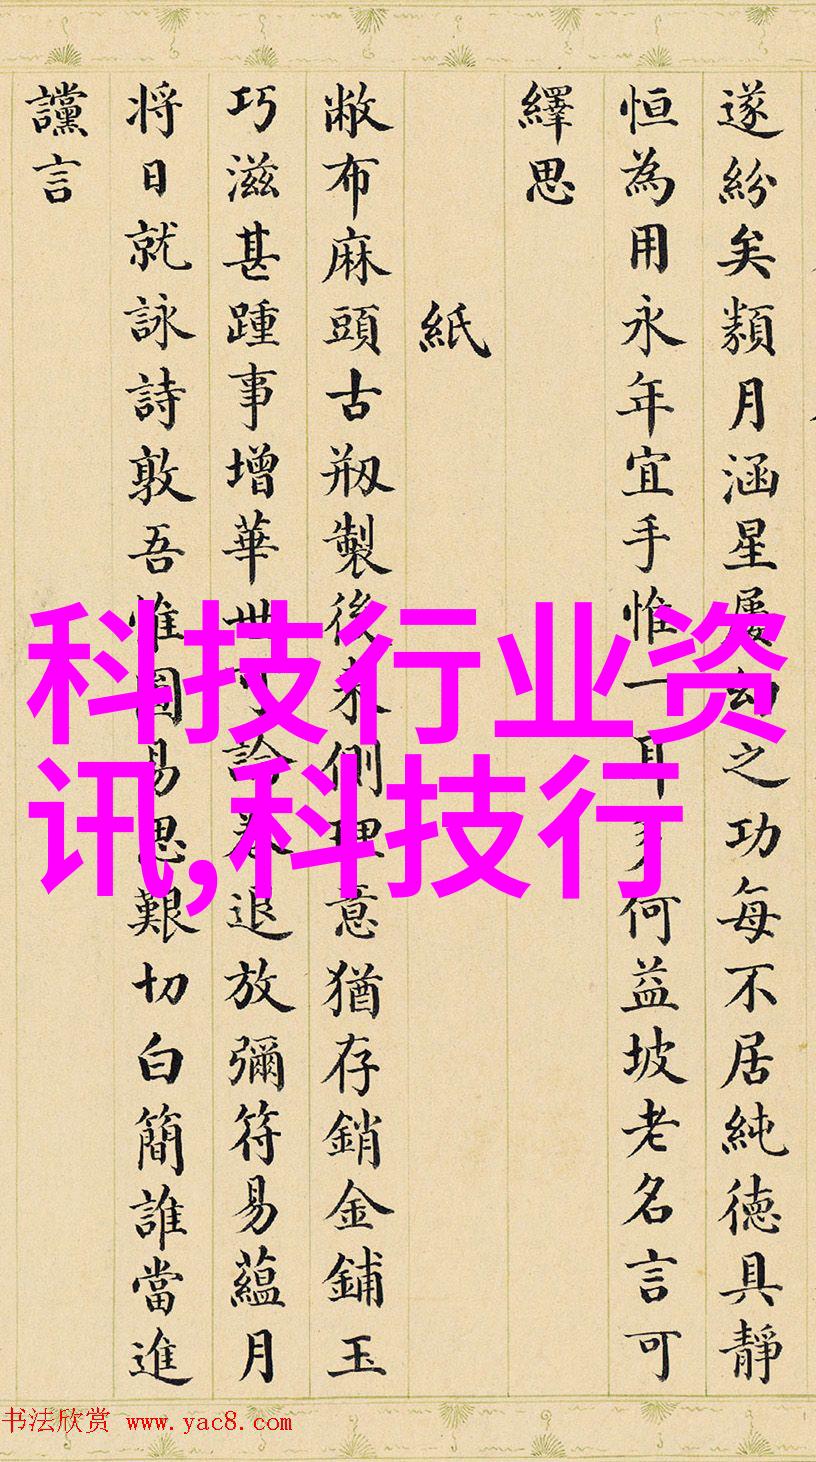 遂紛矣纇月涵星屢幻之功每不居純德具靜
恒為用永年宜手惟一耳多何益坡老名言可
繹思
紙
敝布麻頭古刱製後來側理意猶存銷金鋪玉
巧滋甚踵事增華世可論卷退放彌符易蘊月
将日就詠詩敦吾惟圖易思艱切白簡誰當進
讜言
科技行业资
讯,科技行
书法欣赏 www.yac8.com